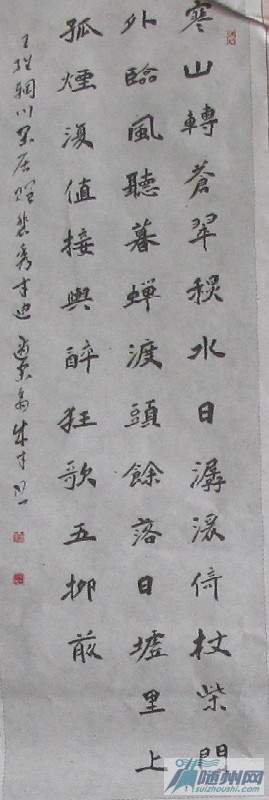 寒山轉蒼翠秋水日潺湲倚杖柴門
外臨風聽暮蟬渡頭餘落日墟里上
孤煙復值接輿醉狂歌五柳前
王維輞川閑居贈裴秀才迪
随州网
suizhoushi.com